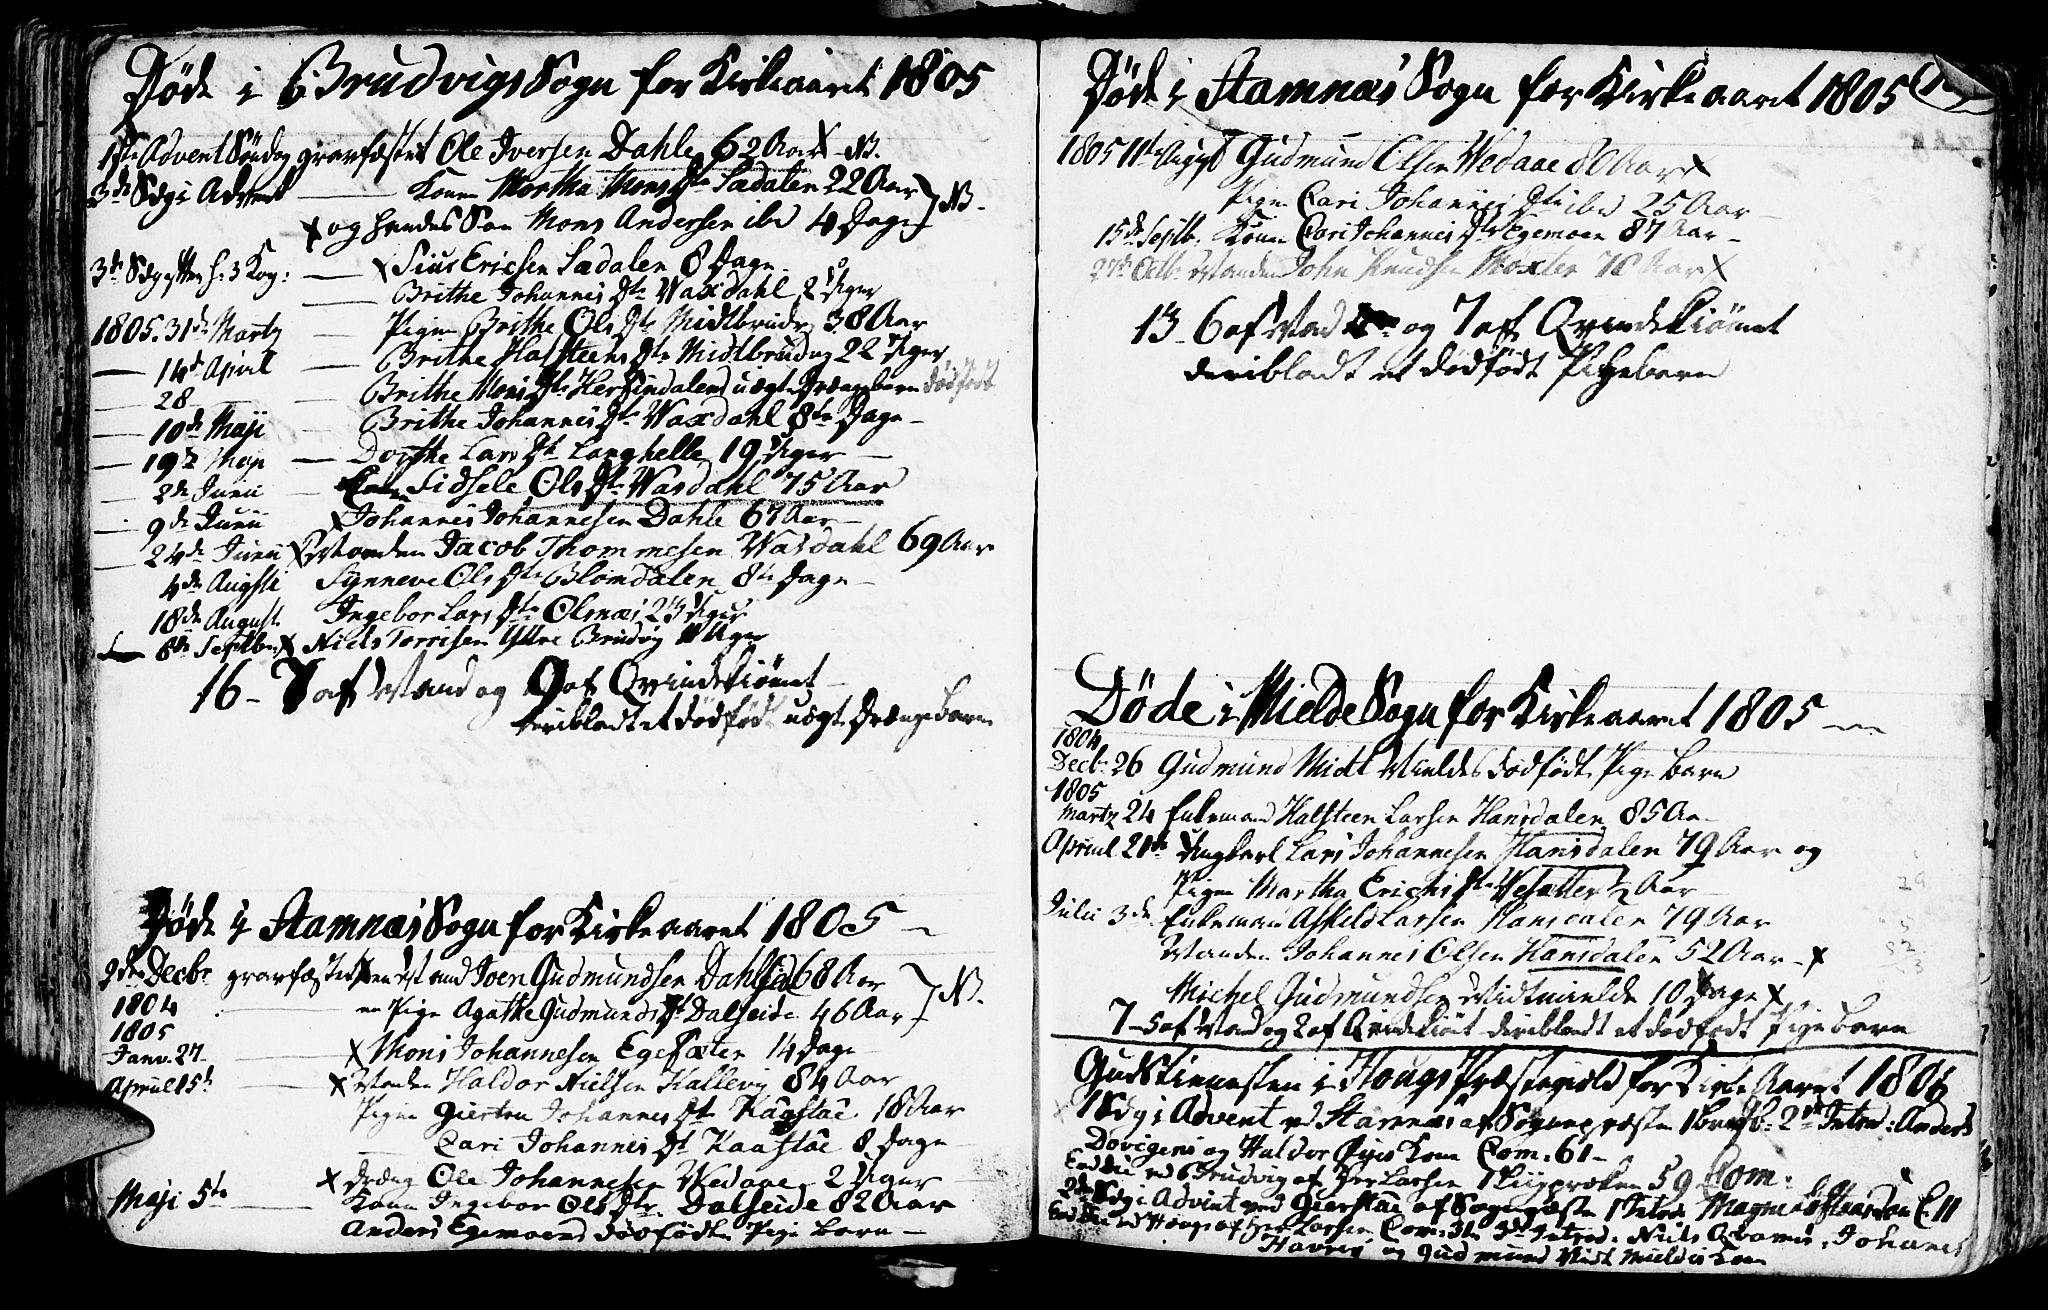 Døde i Brudvigs Sogn for Kirkeaaret 1805
1ste Advent Søndag gravfæstet Ole Iversen Dahle 62 Aar NB.
3de Sdg i Advent Konen Martha Mons Dtr Sædalen 22 Aar NB.
og hendes Søn Mons Andersen ibd 4 Dage
3de Sdg efter h: 3 Kog: Siur Ericsen Sædalen 8 Dage
Brithe Johannes Dtr Waxdahl 2 Uger
1805. 31de Martz Pigen Brithe Ols Dtr Midtbrudvig 38 Aar
14de April Brithe Halsteens Dtr Midtbrudvig 22 Uger
28 Brithe Mons Dtr Hersindalens uægte Drængebarn dødfødt
10de Maji Brithe Johannes Dtr Waxdahl 8te Dage
19de Maji Dorthe Lars Dtr Langhelle 19 Uger
2de Junii Sidsele Ols Dtr Wasdahl 75 Aar
9de Junii Johannes Johannesen Dahle 67 Aar
24de Junii Manden Jacob Thommesen Wasdahl 69 Aar
4de Augsti Synneve Ols Dtr Blomdalen 84 Dage
18de August Ingebor Lars Dtr Olsnæs 23 Uger
8de Septbr Niels Torrisen Yttre Brudvig 11 Uger
16 - 7 af Mand og 9 af Qvindekiønnet
deriblandt et dødfødt uægte Drængebarn
Døde i Stamnæs Sogn for Kirkeaaret 1805
9de Decbr gravfæstet en Mand Joen Gudmundsen Dahlseid 68 Aar NB.
1804 en Pige Agathe Gudmunds Dtr Dalseide 46 Aar
1805
Janv. 27 Mons Johannesen Egesæter 14 Dage
Apriil 15de Manden Haldor Nielsen Kallevig 84 Aar
Pigen Giertru Johannes Dtr Kaastad 18 Aar
Cari Johannes Dtr Kaastad 8 Dage
Dræng Ole Johannesen Wedaae 2 Uger
Maji 5te Konen Ingebor Ols Dtr Dalseide 82 Aar
Anders Egemoens dødfødte Pige barn
Døde i Stamnæs Sogn for Kirkeaaret 1805
1805 11te Augst Gudmund Olsen Wedaae 80 Aar
Pigen Cari Johannes Dtr ibd 25 Aar
15de Septb. Konen Cari Johannes Dtr Egemoen 87 Aar
27de Octb. Manden John Knudsen Moxter 70 Aar
13 - 6 af Mand og 7 af Qvindekiønnet
deriblandt et dødfødt Pigebarn
Døde i Mielde Sogn for Kirkeaaret 1805
1804
Decbr 26 Gudmund Midt Mieldes dødfødte Pige barn
1805
Martz 24 Enkemand Halsteen Larsen Hansdalen 85 Aar
Apriil 21de Ungkarl Lars Johannesen Hansdalen 79 Aar og
Pigen Martha Erichs Dtr Wesætter 1/2 Aar
Julii 3de Enkemand Askeld Larsen Hansdalen 79 Aar
Manden Johannes Olsen Hansdalen 52 Aar
Michel Gudmundsen Midtmielde 10 Dage
7 - 5 af Mand og 2 af Qvindekiøn deriblandt et dødfødt Pige barn
Gudstienesten i Hougs Præstegield for Kirke Aaret 1806
1 Sdg i Advent ved Stamnæs af Sognepræsten 1 2de Introd: Anders
Dovigens og Haldor Koner Com. 61
End die ved Brudvig af Hr Larsen 59 Com.
2de Sdg i Advent ved Gierstad af Sognepræsten 1 Introd. Magne C. 11
End die ved Houge af Hr Larsen Com. 31 Introd. Niels Johannes
Havrey og Gudmund Midt Mieldes Koner